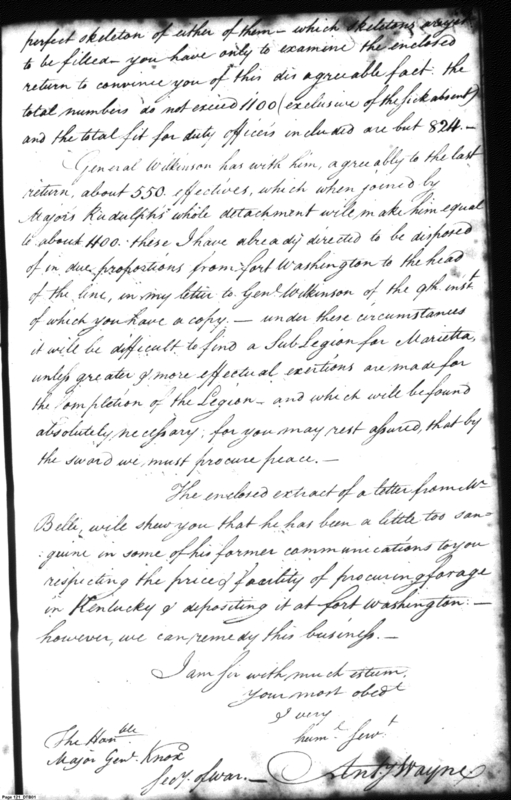 perfect skeleton of either of them – which skeletons are yet
to be filled – you have only to examine the enclosed
return to convince you of this disagreeable fact: the
total numbers do not exceed 1100 (exclusive of the sick absent)
and the total fit for duty officers included are but 824. –
General Wilkinson has with him, agreeably to the last
return, about 550 effectives, which when joined by
Majors Rudulph's whole detachment will make him equal
to about 1100. these I have already directed to be disposed
of in due proportions from fort Washington to the head
of the line, in my letter to Genl. Wilkinson of the 9th inst
of which you have a copy. – under these circumstances
it will be difficult to find a Sub Legion for Marietta,
unless greater & more effectual exertions are made for
the Completion of the Legion – and which will be found
absolutely necessary; for you may rest assured, that by
the sword we must procure peace. –
The enclosed extract of a letter from Mr
Belli, will shew you that he has been a little too san-
:guine in some of his former communications to you
respecting the price & facility of procuring forage
in Kentucky & depositing it at fort Washington: –
however, we can remedy this business. –
I am Sir with much esteem
Your most obedt
& very
huml. Servt
The Honble
Major Genl. Knox
Secy. of War. –
Anty. Wayne
Page 121 :D1501